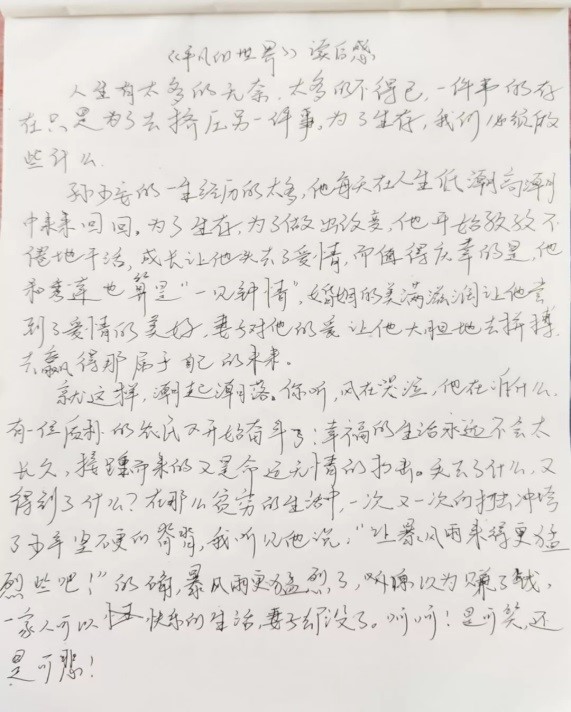 《平凡的世界》读后感
人生有太多的无奈，太多的不得已，一件事的存
在只是为了去挤压另一件事，为了生存，我们必须做
些什么.
孙少安的一生经历的太多，他每天在人生低潮高潮
中来来回回。为了生存，为了做出改变，他开始孜孜不
倦地干活，成长让他失去了爱情，而值得庆幸的是，他
和秀莲也算是"一见钟情"，婚姻的美满滋润让他尝
到了爱情的美好，妻子对他的爱让他大胆地去拼搏
去赢得那属于自己的未来。
就这样，潮起潮落。你听，风在哭泣，他在诉什么.
有一位胜利的农民又开始奋斗了；幸福的生活永远不会太
长久，接踵而来的又是命运无情的打击。失去了什么，又
得到了什么？在那么贫穷的生活中，一次又一次的打击冲垮
了少年坚硬的脊背，我听见他说，"让暴风雨来得更猛
烈些吧！"的确，暴风雨更猛烈了，以为赚了钱，
一家人可以快乐的生活，妻子却没了。呵呵！是可笑，还
是可悲！